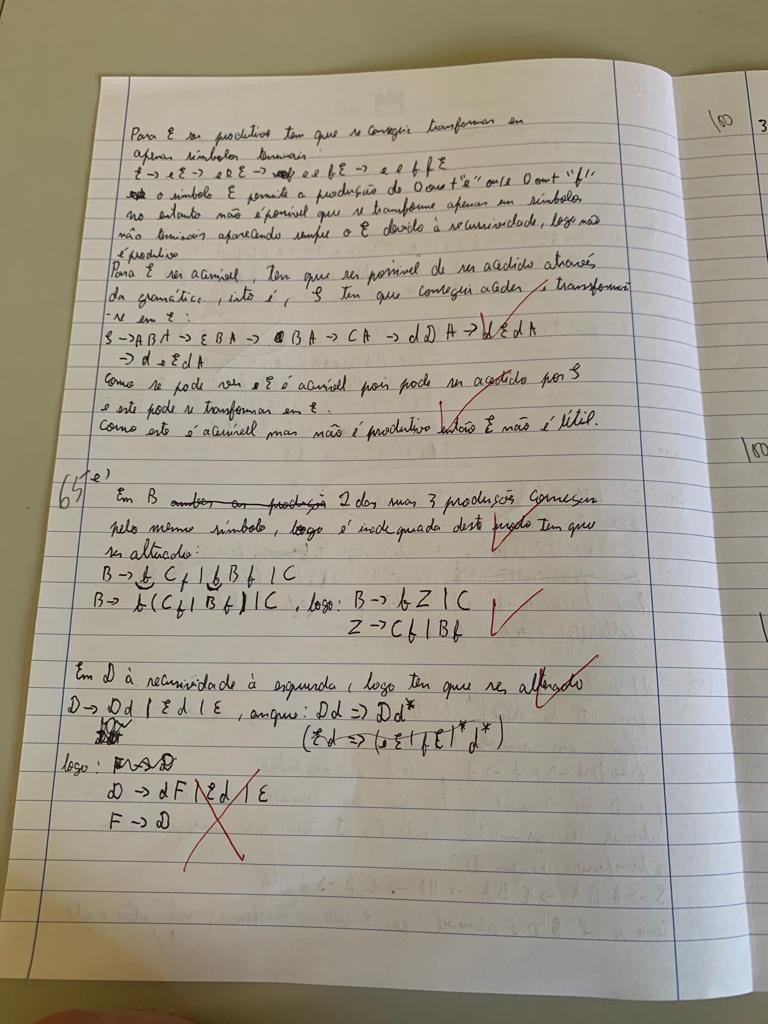 100
3
Para E ser produtivo tem que se conseguir transformar em
apenas símbolos terminais:
E → eE → eeE → eefE → eeffE
o símbolo E permite a produção de 0 ou + "e" ou/e 0 ou + "f"
no entanto não é possível que se transforme apenas em símbolos
não terminais aparecendo sempre o E devido à recursividade, logo não
é produtivo
Para E ser acessível, tem que ser possível de ser acedido através
da gramática, isto é, S tem que conseguir aceder e transformar
-se em E:
S → ABA → εBA → BA → CA → dDA → dEdA
→ deEdA
Como se pode ver E é acessível pois pode ser acedido por S
e este pode se transformar em E.
Como este é acessível mas não é produtivo então E não é útil.
100
65
e)
Em B 2 das suas 3 produções começam
pelo mesmo símbolo, logo é inadequada deste modo tem que
ser alterado:
B → b C f | b B f | C
B → b(Cf | Bf) | C, logo: B → bZ | C
Z → Cf | Bf
Em D à recursividade à esquerda, logo tem que ser alterado
D → Dd | Ed | ε, Dd => Dd*
(Ed => (eE | fE)* d*)
logo:
D → dF | Ed | ε
F → D